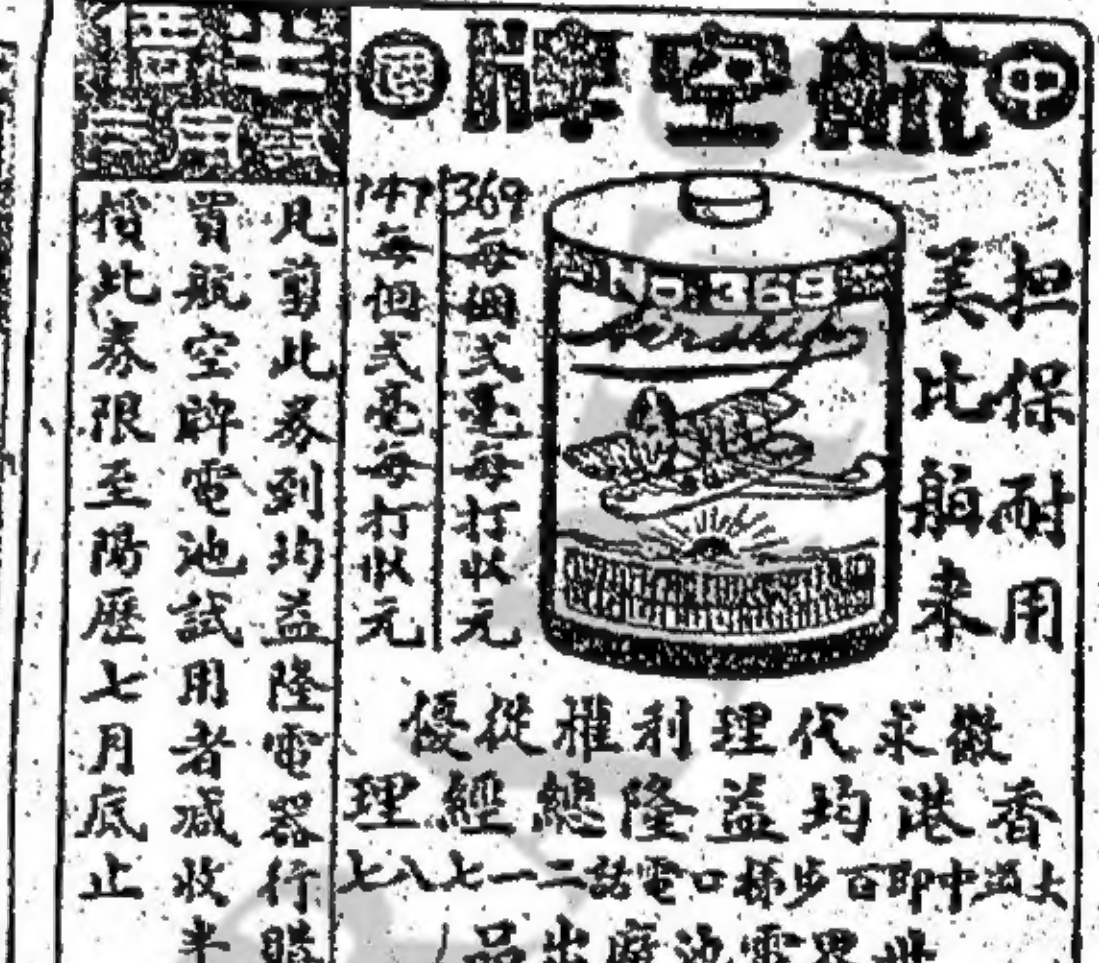 中 航空牌 國
担保耐用
美比舶来
No.369
369每個弍毫每打收元
147每個弍毫每打收元
徵求代理利權從優
香港均益隆總經理
電話二一七八七
世界電池廠出品
半價
試用券
凡剪此券到均益隆電器行購
買航空牌電池試用者減收半
價此券限至陽歷七月底止